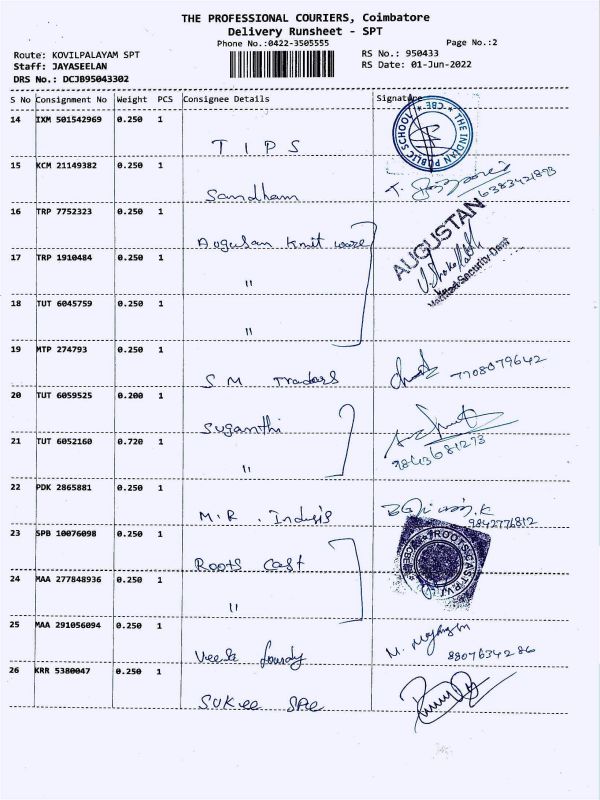 THE PROFESSIONAL COURIERS, Coimbatore
Delivery Runsheet - SPT
Phone No.:0422-3505555 Page No.:2
Route: KOVILPALAYAM SPT RS No.: 950433
Staff: JAYASEELAN RS Date: 01-Jun-2022
DRS No.: DCJB95043302
S No Consignment No Weight PCS Consignee Details Signature
14 IXM 501542969 0.250 1
THE INDIAN PUBLIC SCHOOL * CBE *
T I P S
15 KCM 21149382 0.250 1
6383421893
Sandham
16 TRP 7752323 0.250 1
AUGUSTAN
Augusan Knit ware
17 TRP 1910484 0.250 1
"
Security Dept
18 TUT 6045759 0.250 1
"
19 MTP 274793 0.250 1
S M Traders 7708079642
20 TUT 6059525 0.200 1
Suganthi
21 TUT 6052160 0.720 1
9843681273
"
22 PDK 2865881 0.250 1
M.R. 9842776812
23 SPB 10076098 0.250 1
ROOTS CAST
Roots Cast
24 MAA 277848936 0.250 1
"
25 MAA 291056094 0.250 1
8807634286
26 KRR 5380047 0.250 1